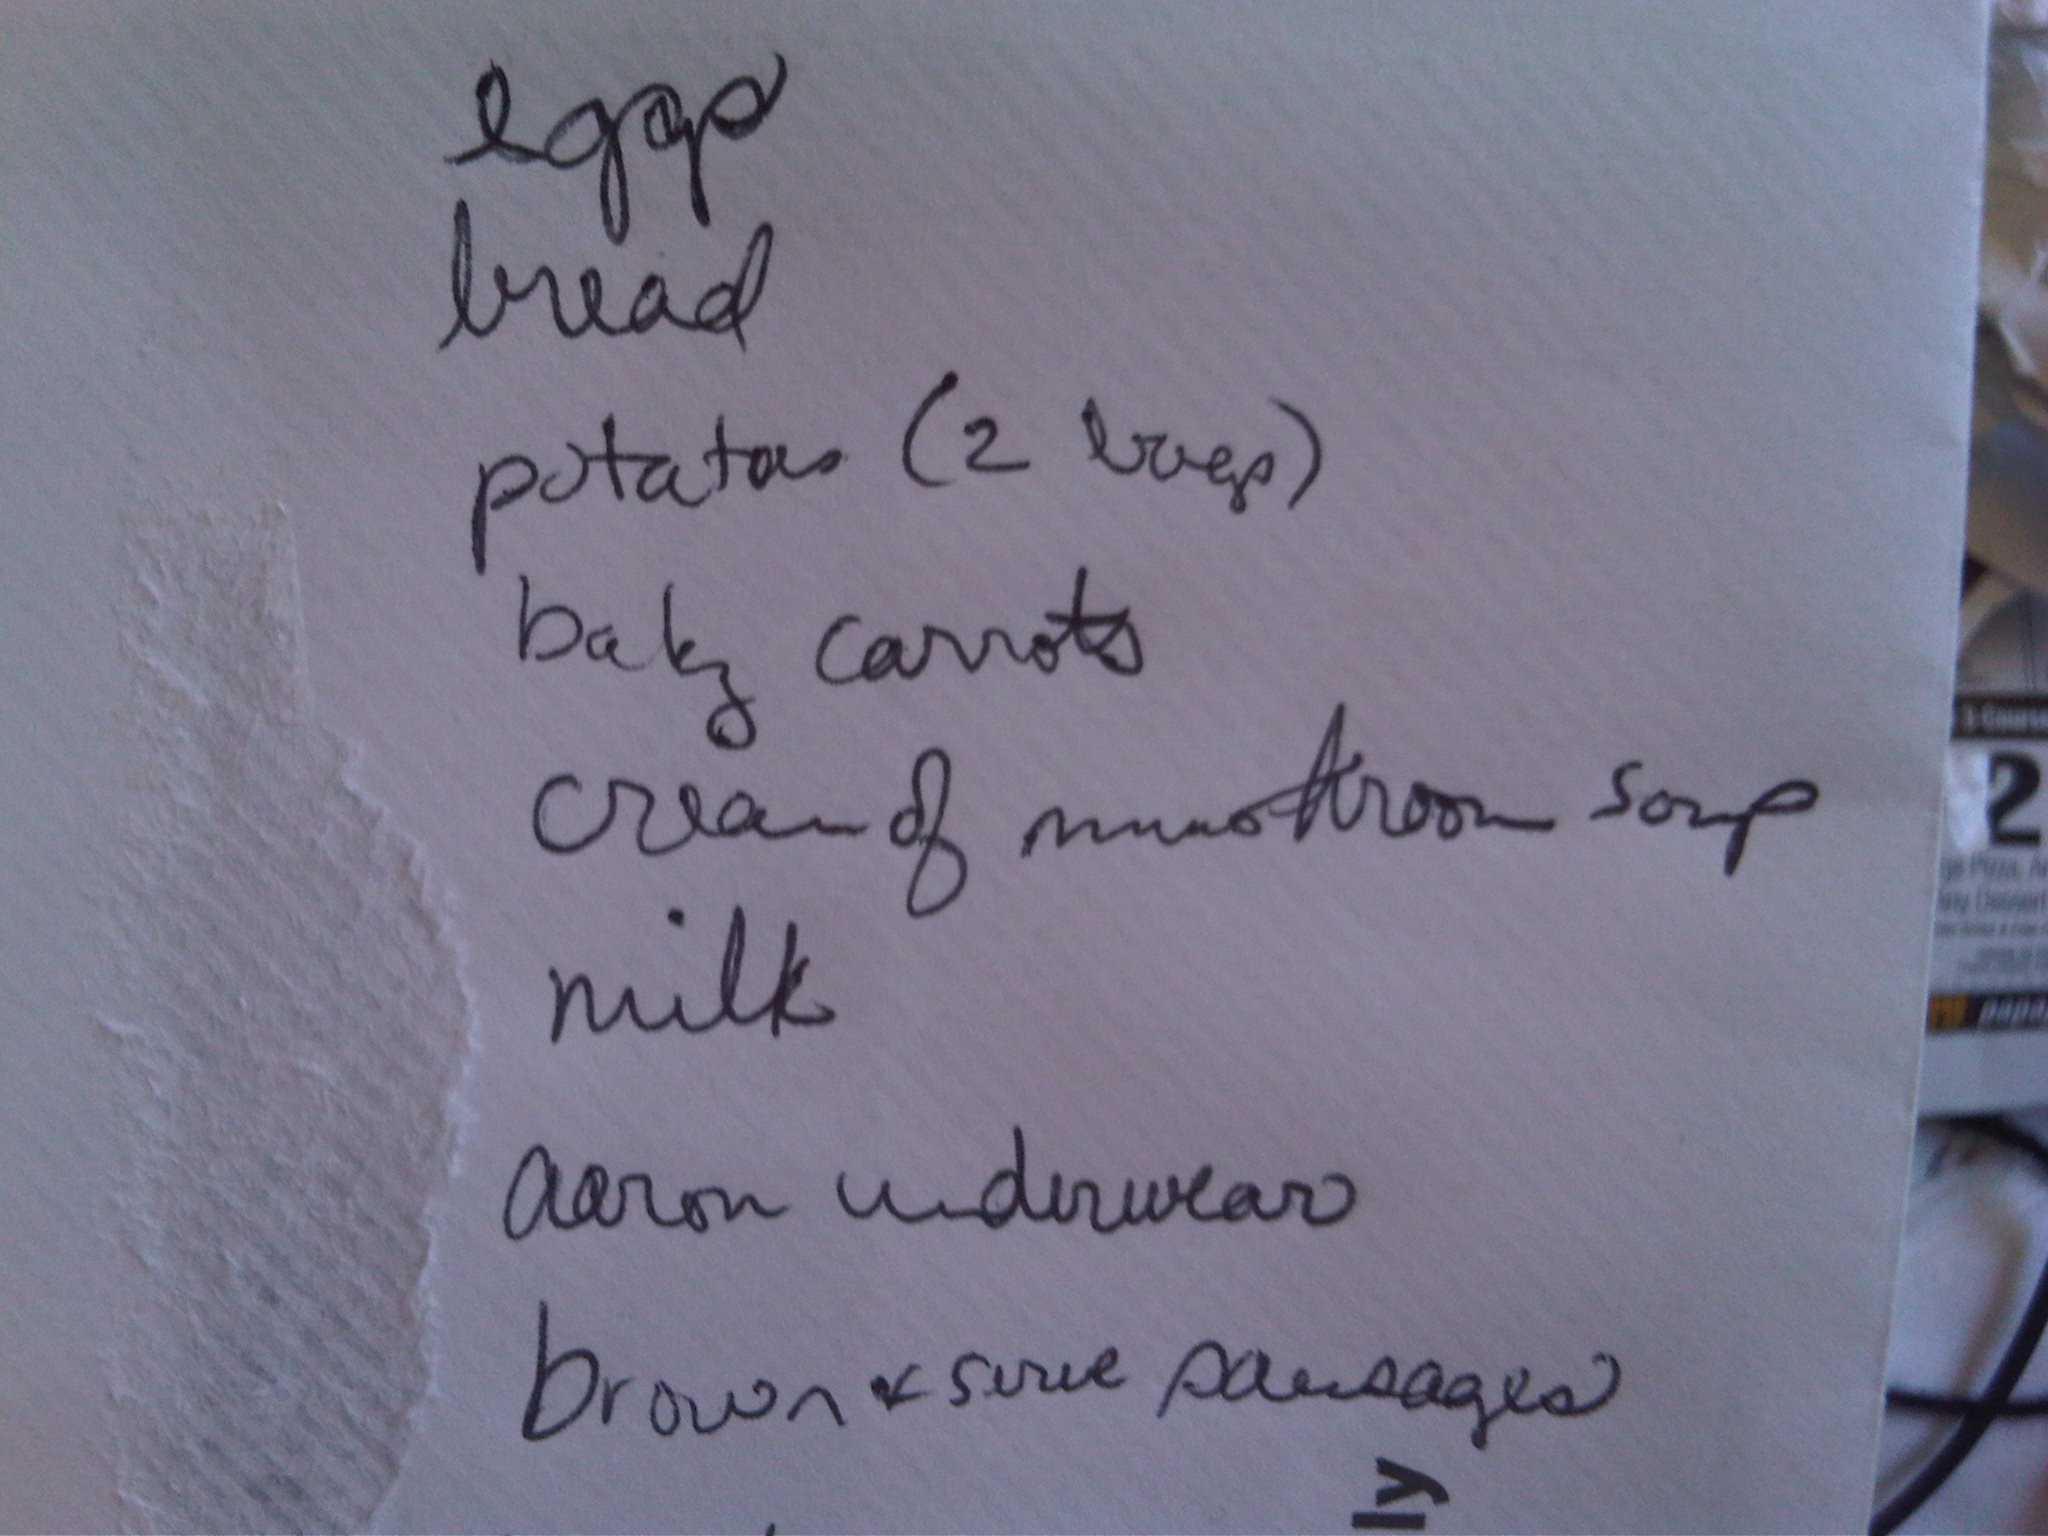 eggs
bread
potatoes (2 bags)
baby carrots
cream of mushroom soup
milk
aaron underwear
brown & serve sausages
ly
2